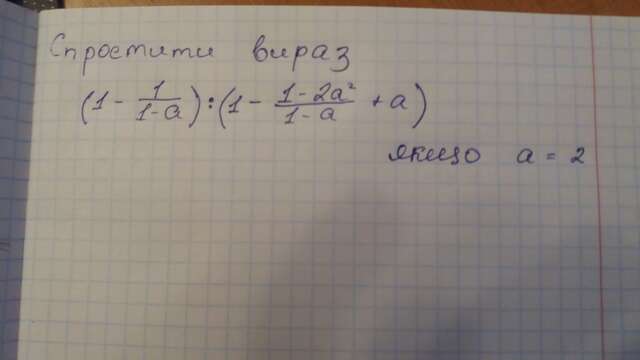 Спростити вираз
(1 - \frac{1}{1-a}) : (1 - \frac{1-2a²}{1-a} + a)
якщо a = 2